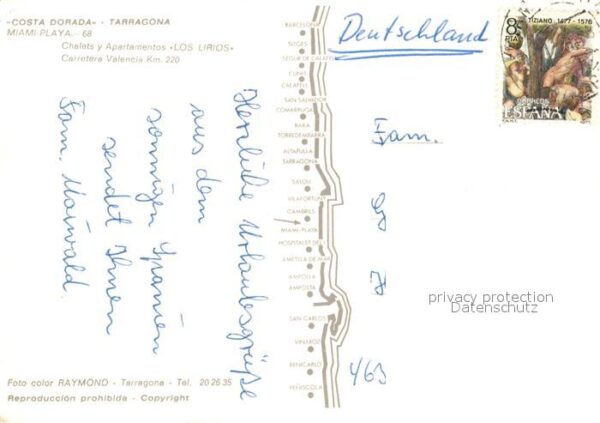 «COSTA DORADA» - TARRAGONA
MIAMI-PLAYA.- 68
Chalets y Apartamentos «LOS LIRIOS»
Carretera Valencia Km. 220
Herzliche Urlaubsgrüße
aus dem
sonnigen Spanien
sendet Ihnen
Fam. Maiwald
Foto color RAYMOND - Tarragona - Tel. 20 26 35
Reproducción prohibida - Copyright
BARCELONA
SITGES
SEGUR DE CALAFELL
CUNIT
CALAFELL
SAN SALVADOR
COMARRUGA
BARA
TORREDEMBARRA
ALTAFULLA
TARRAGONA
SALOU
VILAFORTUNY
CAMBRILS
MIAMI-PLAYA
HOSPITALET DEL
AMETLLA DE MAR
AMPOLLA
AMPOSTA
SAN CARLOS
VINAROZ
BENICARLO
PEÑISCOLA
Deutschland
8 PTA
TIZIANO 1477-1576
CORREOS
ESPAÑA
Fam.
463
privacy protection
Datenschutz